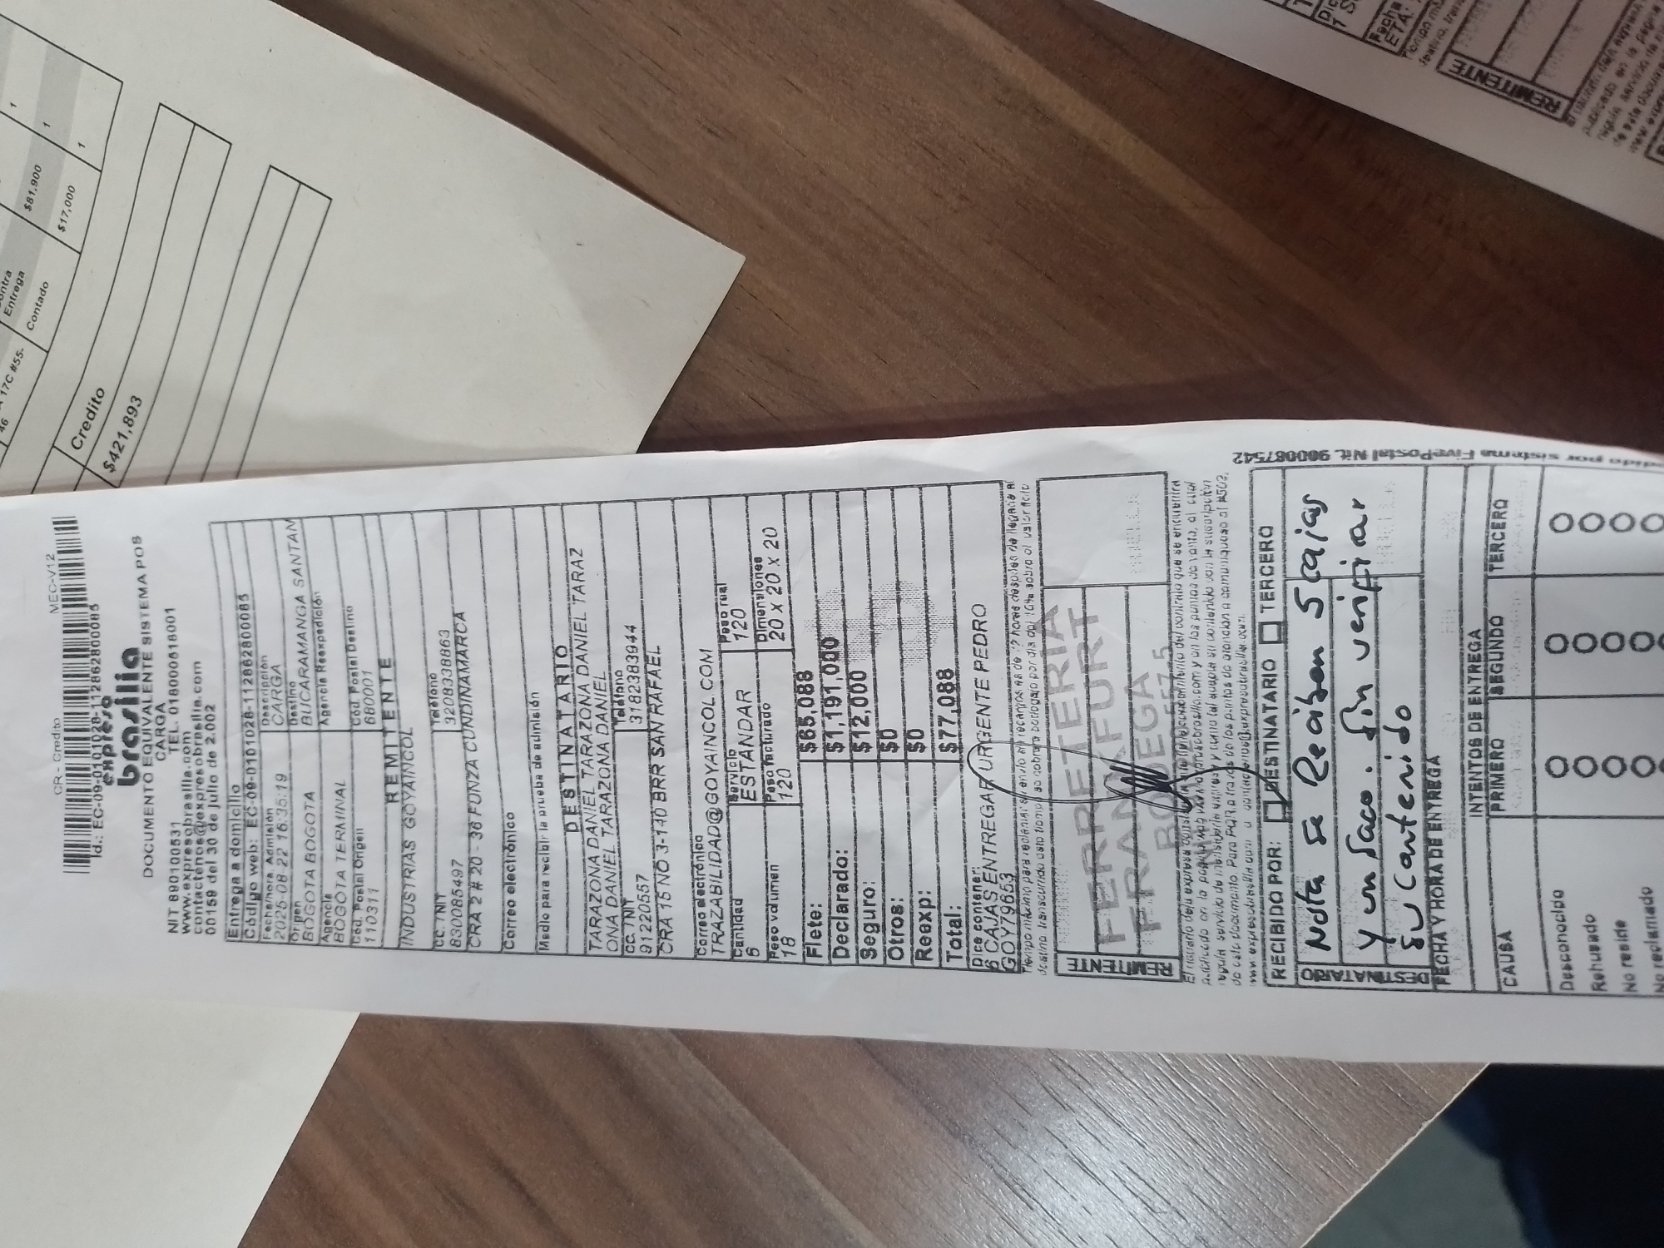 $81,900 1
$17,000 1
Entrega
Contado
Credito
$421,893
REMITENTE
CR - Credito MEC-V12
Id.: EC-09-0101028-1128628000085
expreso
brasilia
DOCUMENTO EQUIVALENTE SISTEMA POS
CARGA
NIT 890100531 TEL. 018000618001
www.expresobrasilia.com
contactenos@expresobrasilia.com
00159 del 30 de julio de 2.002
Entrega a domicilio
Código web: EC-09-0101028-1128628000085
Fecha/hora Admisión Descripción
2025-08-22 16:35:19 CARGA
Origen Destino
BOGOTA BOGOTA BUCARAMANGA SANTAN
Agencia Agencia Reexpedición
BOGOTA TERMINAL
Cód. Postal Origen Cód. Postal Destino
110311 680001
REMITENTE
INDUSTRIAS GOYAINCOL
CC. / NIT Teléfono
830085497 3208338863
CRA 2 # 20 - 36 FUNZA CUNDINAMARCA
Correo electrónico
Medio para recibir la prueba de admisión
DESTINATARIO
TARAZONA DANIEL TARAZONA DANIEL TARAZ
ONA DANIEL TARAZONA DANIEL
CC. / NIT Teléfono
91220557 3182383944
CRA 15 NO 3-140 BRR SAN RAFAEL
Correo electrónico
TRAZABILIDAD@GOYAINCOL.COM
Cantidad Servicio Peso real
6 ESTANDAR 120
Peso volumen Peso facturado Dimensiones
18 120 20 x 20 x 20
Flete: $65,088
Declarado: $1,191,000
Seguro: $12,000
Otros: $0
Reexp: $0
Total: $77,088
Dice contener:
6 CAJAS ENTREGAR URGENTE PEDRO
GOY79653
REMITENTE
FERRETERIA
FRANKFURT
BODEGA
RECIBIDO POR: DESTINATARIO TERCERO
DESTINATARIO
Nota se Reciben 5 cajas
y un saco. Sin verificar
su contenido
FECHA Y HORA DE ENTREGA
INTENTOS DE ENTREGA
CAUSA PRIMERO SEGUNDO TERCERO
Desconocido
Rehusado
No reside
No reclamado